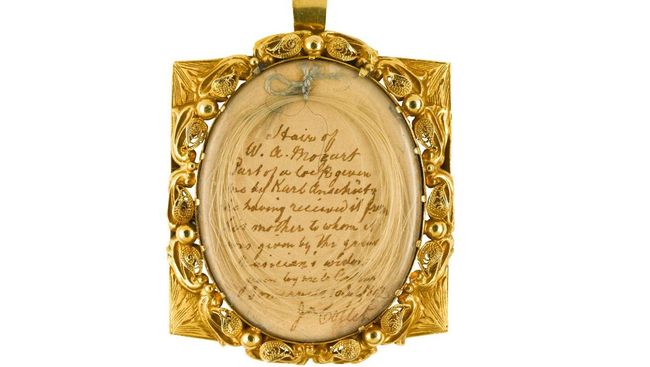 Hair of
W. A. Mozart
Part of a lock given
me by Karl Anschütz
as having received it from
his mother to whom it
was given by the great
musician's widow
by me to